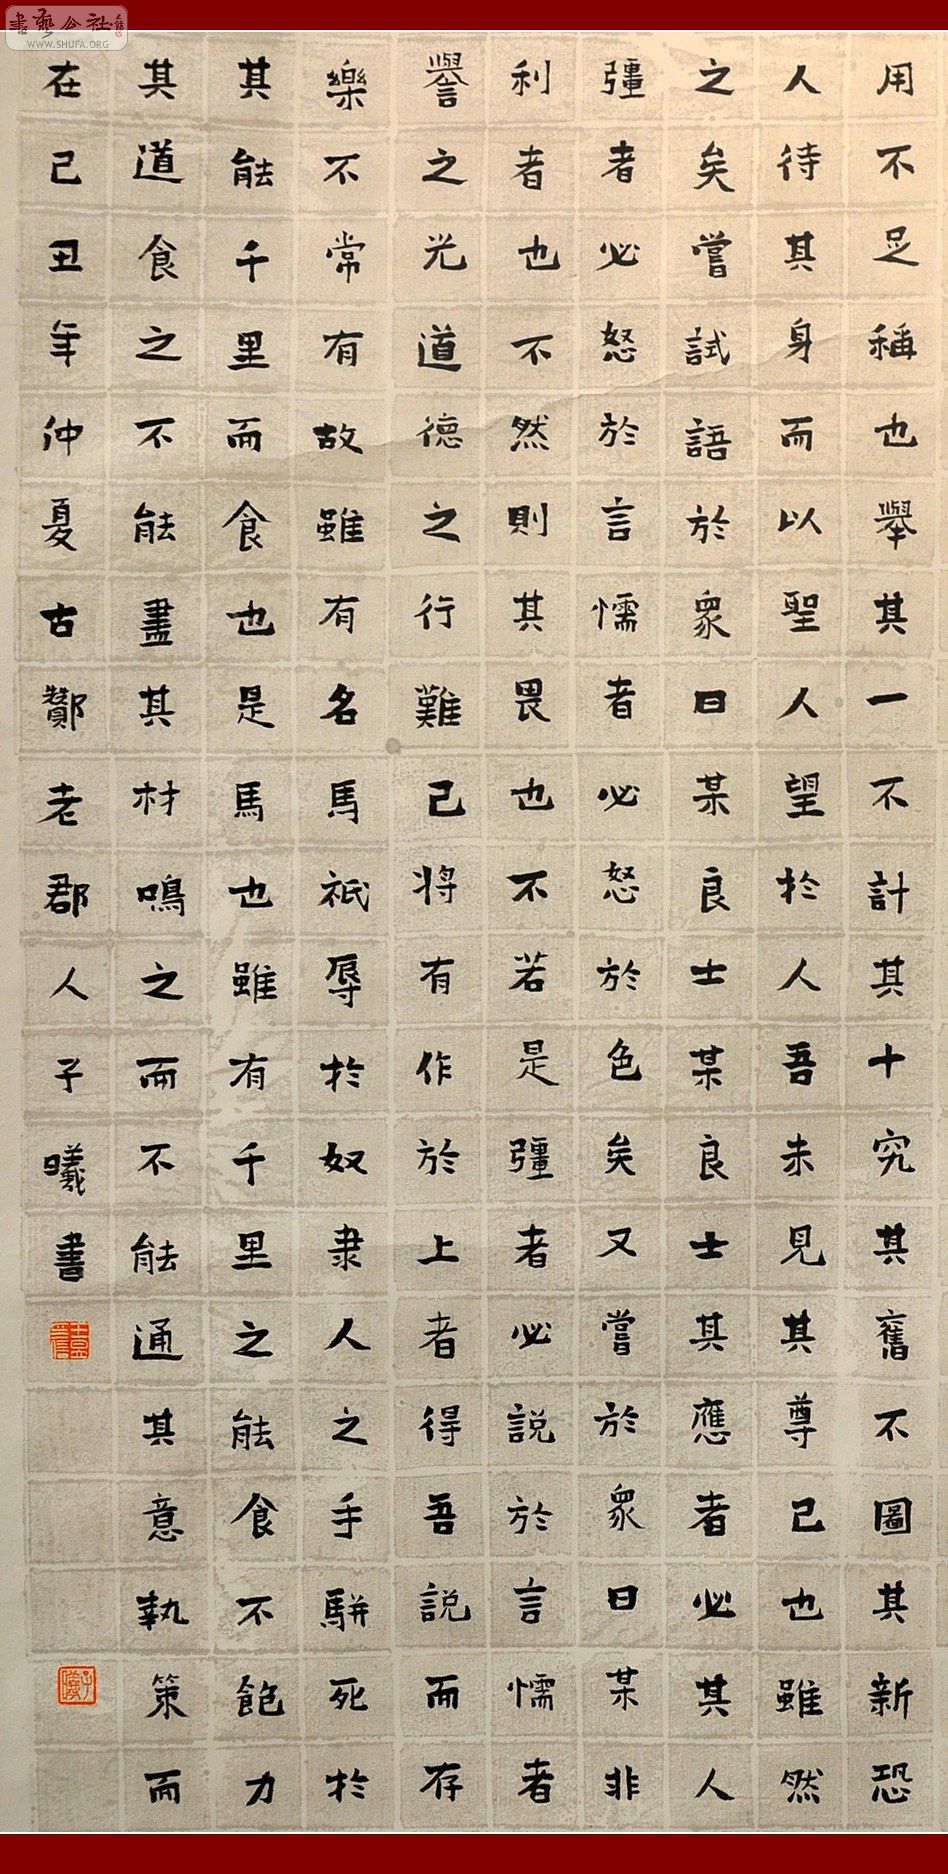 用不足稱也舉其一不計其十究其舊不圖其新恐
人待其身而以聖人望於人吾未見其尊己也雖然
之矣嘗試語於衆曰某良士某良士其應者必其人
彊者必怒於言懦者必怒於色矣又嘗於衆曰某非
利者也不然則其畏也不若是彊者必説於言懦者
譽之光道德之行難已將有作於上者得吾説而存
樂不常有故雖有名馬祇辱於奴隶人之手駢死於
其能千里而食也是馬也雖有千里之能食不飽力
其道食之不能盡其材鳴之而不能通其意執策而
在己丑年仲夏古酇老郡人子曦書
書藝公社
WWW.SHUFA.ORG